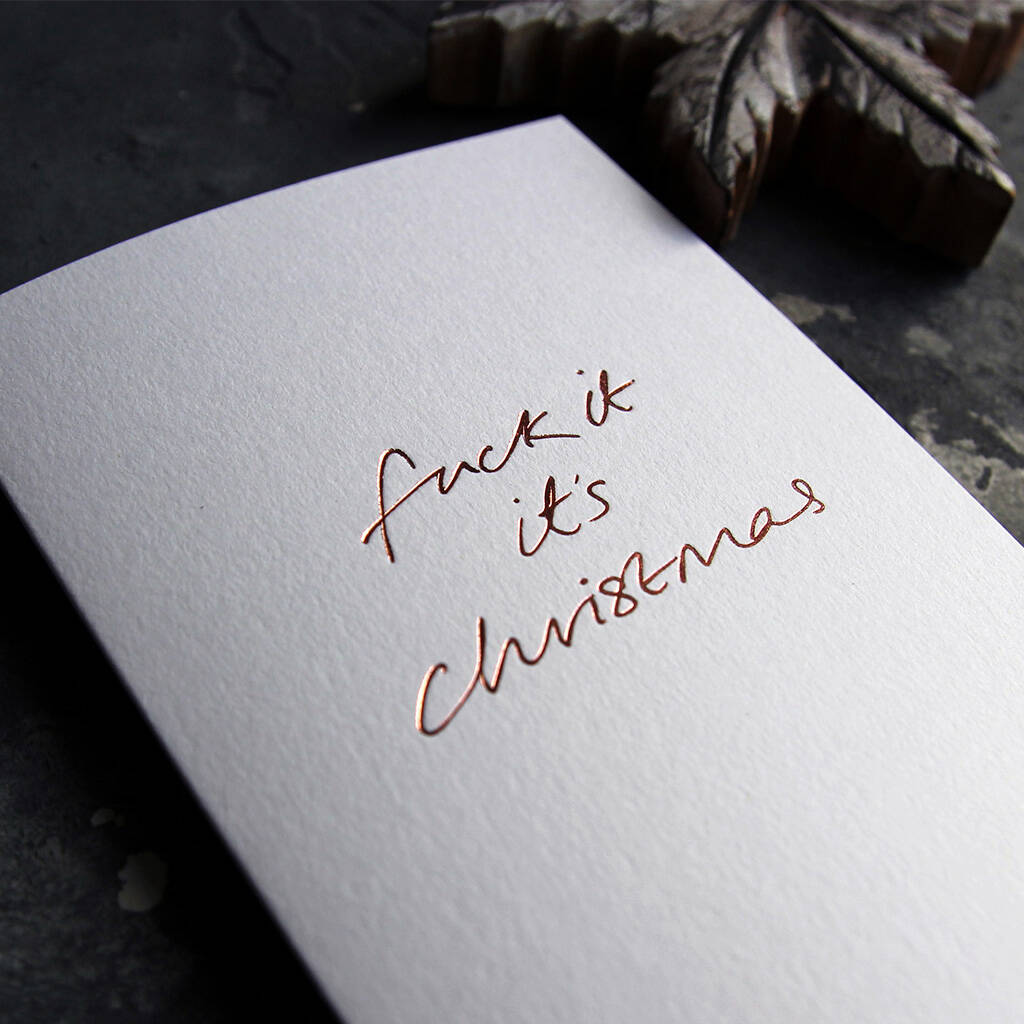 fuck it
it's
christmas